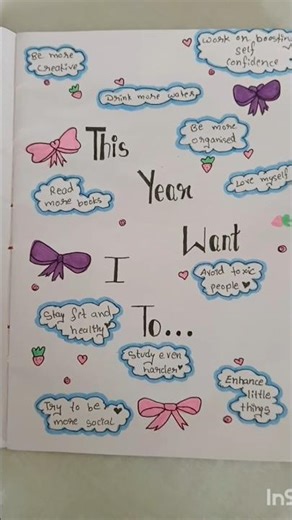 Be more
creative
Work on boosting
self
confidence
Drink more water
This
Be more
organised
Read
more books
Year
Love myself
Want
I
Avoid toxic
people
Stay fit and
healthy
To...
Study even
harder
Enhance
little
things
Try to be
more social
InS